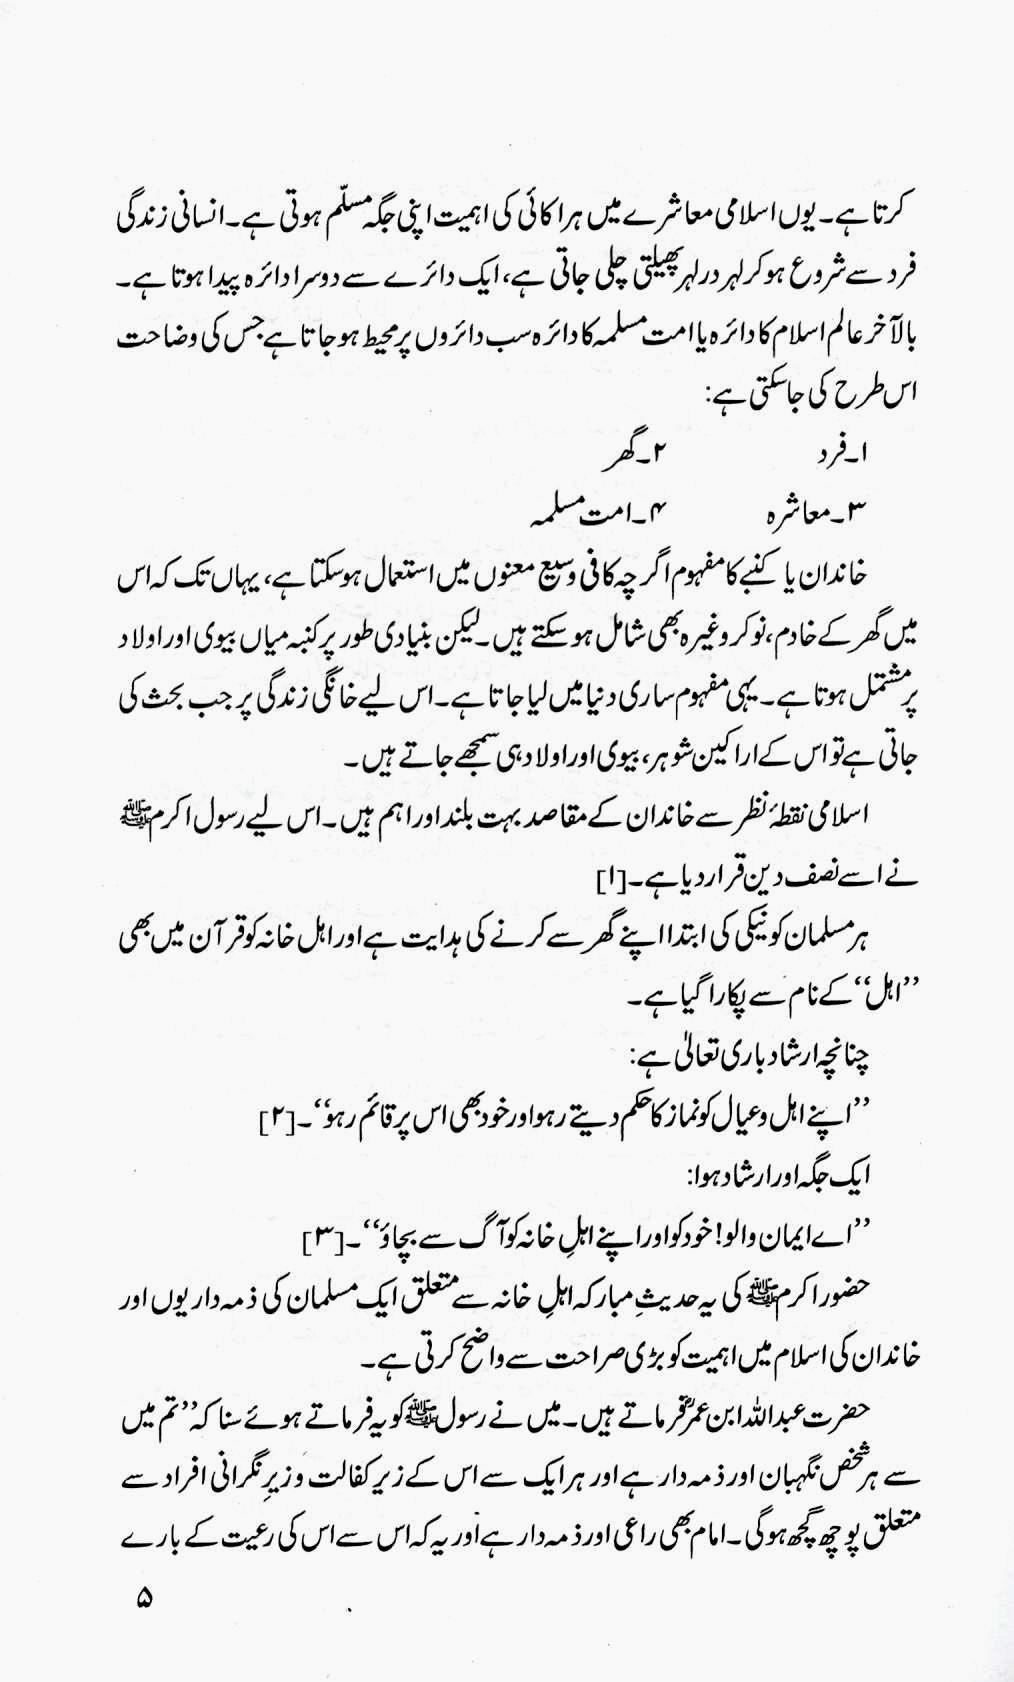 کرتا ہے۔ یوں اسلامی معاشرے میں ہر اکائی کی اہمیت اپنی جگہ مسلّم ہوتی ہے۔ انسانی زندگی
فرد سے شروع ہو کر لہر در لہر پھیلتی چلی جاتی ہے، ایک دائرے سے دوسرا دائرہ پیدا ہوتا ہے۔
بالآخر عالم اسلام کا دائرہ یا امت مسلمہ کا دائرہ سب دائروں پر محیط ہو جاتا ہے جس کی وضاحت
اس طرح کی جا سکتی ہے:
۱۔ فرد ۲۔ گھر
۳۔ معاشرہ ۴۔ امت مسلمہ
خاندان یا کنبے کا مفہوم اگرچہ کافی وسیع معنوں میں استعمال ہو سکتا ہے، یہاں تک کہ اس
میں گھر کے خادم، نوکر وغیرہ بھی شامل ہو سکتے ہیں۔ لیکن بنیادی طور پر کنبہ میاں بیوی اور اولاد
پر مشتمل ہوتا ہے۔ یہی مفہوم ساری دنیا میں لیا جاتا ہے۔ اس لیے خانگی زندگی پر جب بحث کی
جاتی ہے تو اس کے اراکین شوہر، بیوی اور اولاد ہی سمجھے جاتے ہیں۔
اسلامی نقطۂ نظر سے خاندان کے مقاصد بہت بلند اور اہم ہیں۔ اس لیے رسول اکرم ﷺ
نے اسے نصف دین قرار دیا ہے۔ [۱]
ہر مسلمان کو نیکی کی ابتدا اپنے گھر سے کرنے کی ہدایت ہے اور اہل خانہ کو قرآن میں بھی
’’اہل‘‘ کے نام سے پکارا گیا ہے۔
چنانچہ ارشاد باری تعالیٰ ہے:
’’اپنے اہل و عیال کو نماز کا حکم دیتے رہو اور خود بھی اس پر قائم رہو‘‘۔ [۲]
ایک جگہ اور ارشاد ہوا:
’’اے ایمان والو! خود کو اور اپنے اہلِ خانہ کو آگ سے بچاؤ‘‘۔ [۳]
حضور اکرم ﷺ کی یہ حدیثِ مبارکہ اہلِ خانہ سے متعلق ایک مسلمان کی ذمہ داریوں اور
خاندان کی اسلام میں اہمیت کو بڑی صراحت سے واضح کرتی ہے۔
حضرت عبداللہ ابن عمرؓ فرماتے ہیں۔ میں نے رسول ﷺ کو یہ فرماتے ہوئے سنا کہ ’’تم میں
سے ہر شخص نگہبان اور ذمہ دار ہے اور ہر ایک سے اس کے زیر کفالت و زیرِ نگرانی افراد سے
متعلق پوچھ گچھ ہو گی۔ امام بھی راعی اور ذمہ دار ہے اور یہ کہ اس سے اس کی رعیت کے بارے
۵